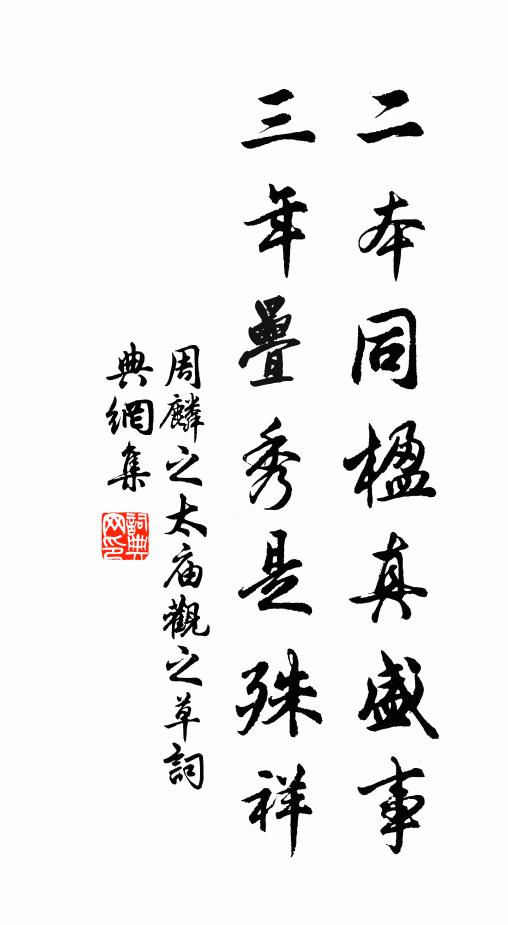 二本同楹真盛事
三年疊秀是殊祥
周麟之太庙觀之草詞
典網集
詞典网印